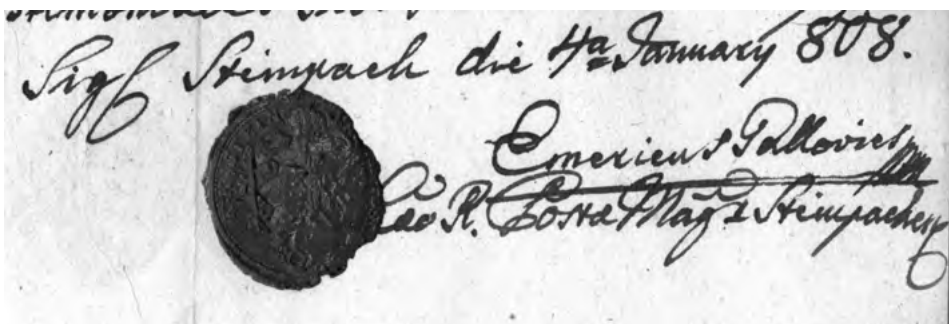 Sigl Steinpach die 4ta January 808.
Emericus Pallovics mp
Cæo R. Posta Mag. Steinpachens